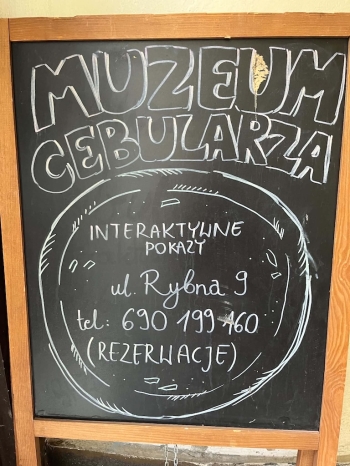 MUZEUM
CEBULARZA
INTERAKTYWNE
POKAZY
ul. Rybna 9
tel: 690 199 460
(REZERWACJE)